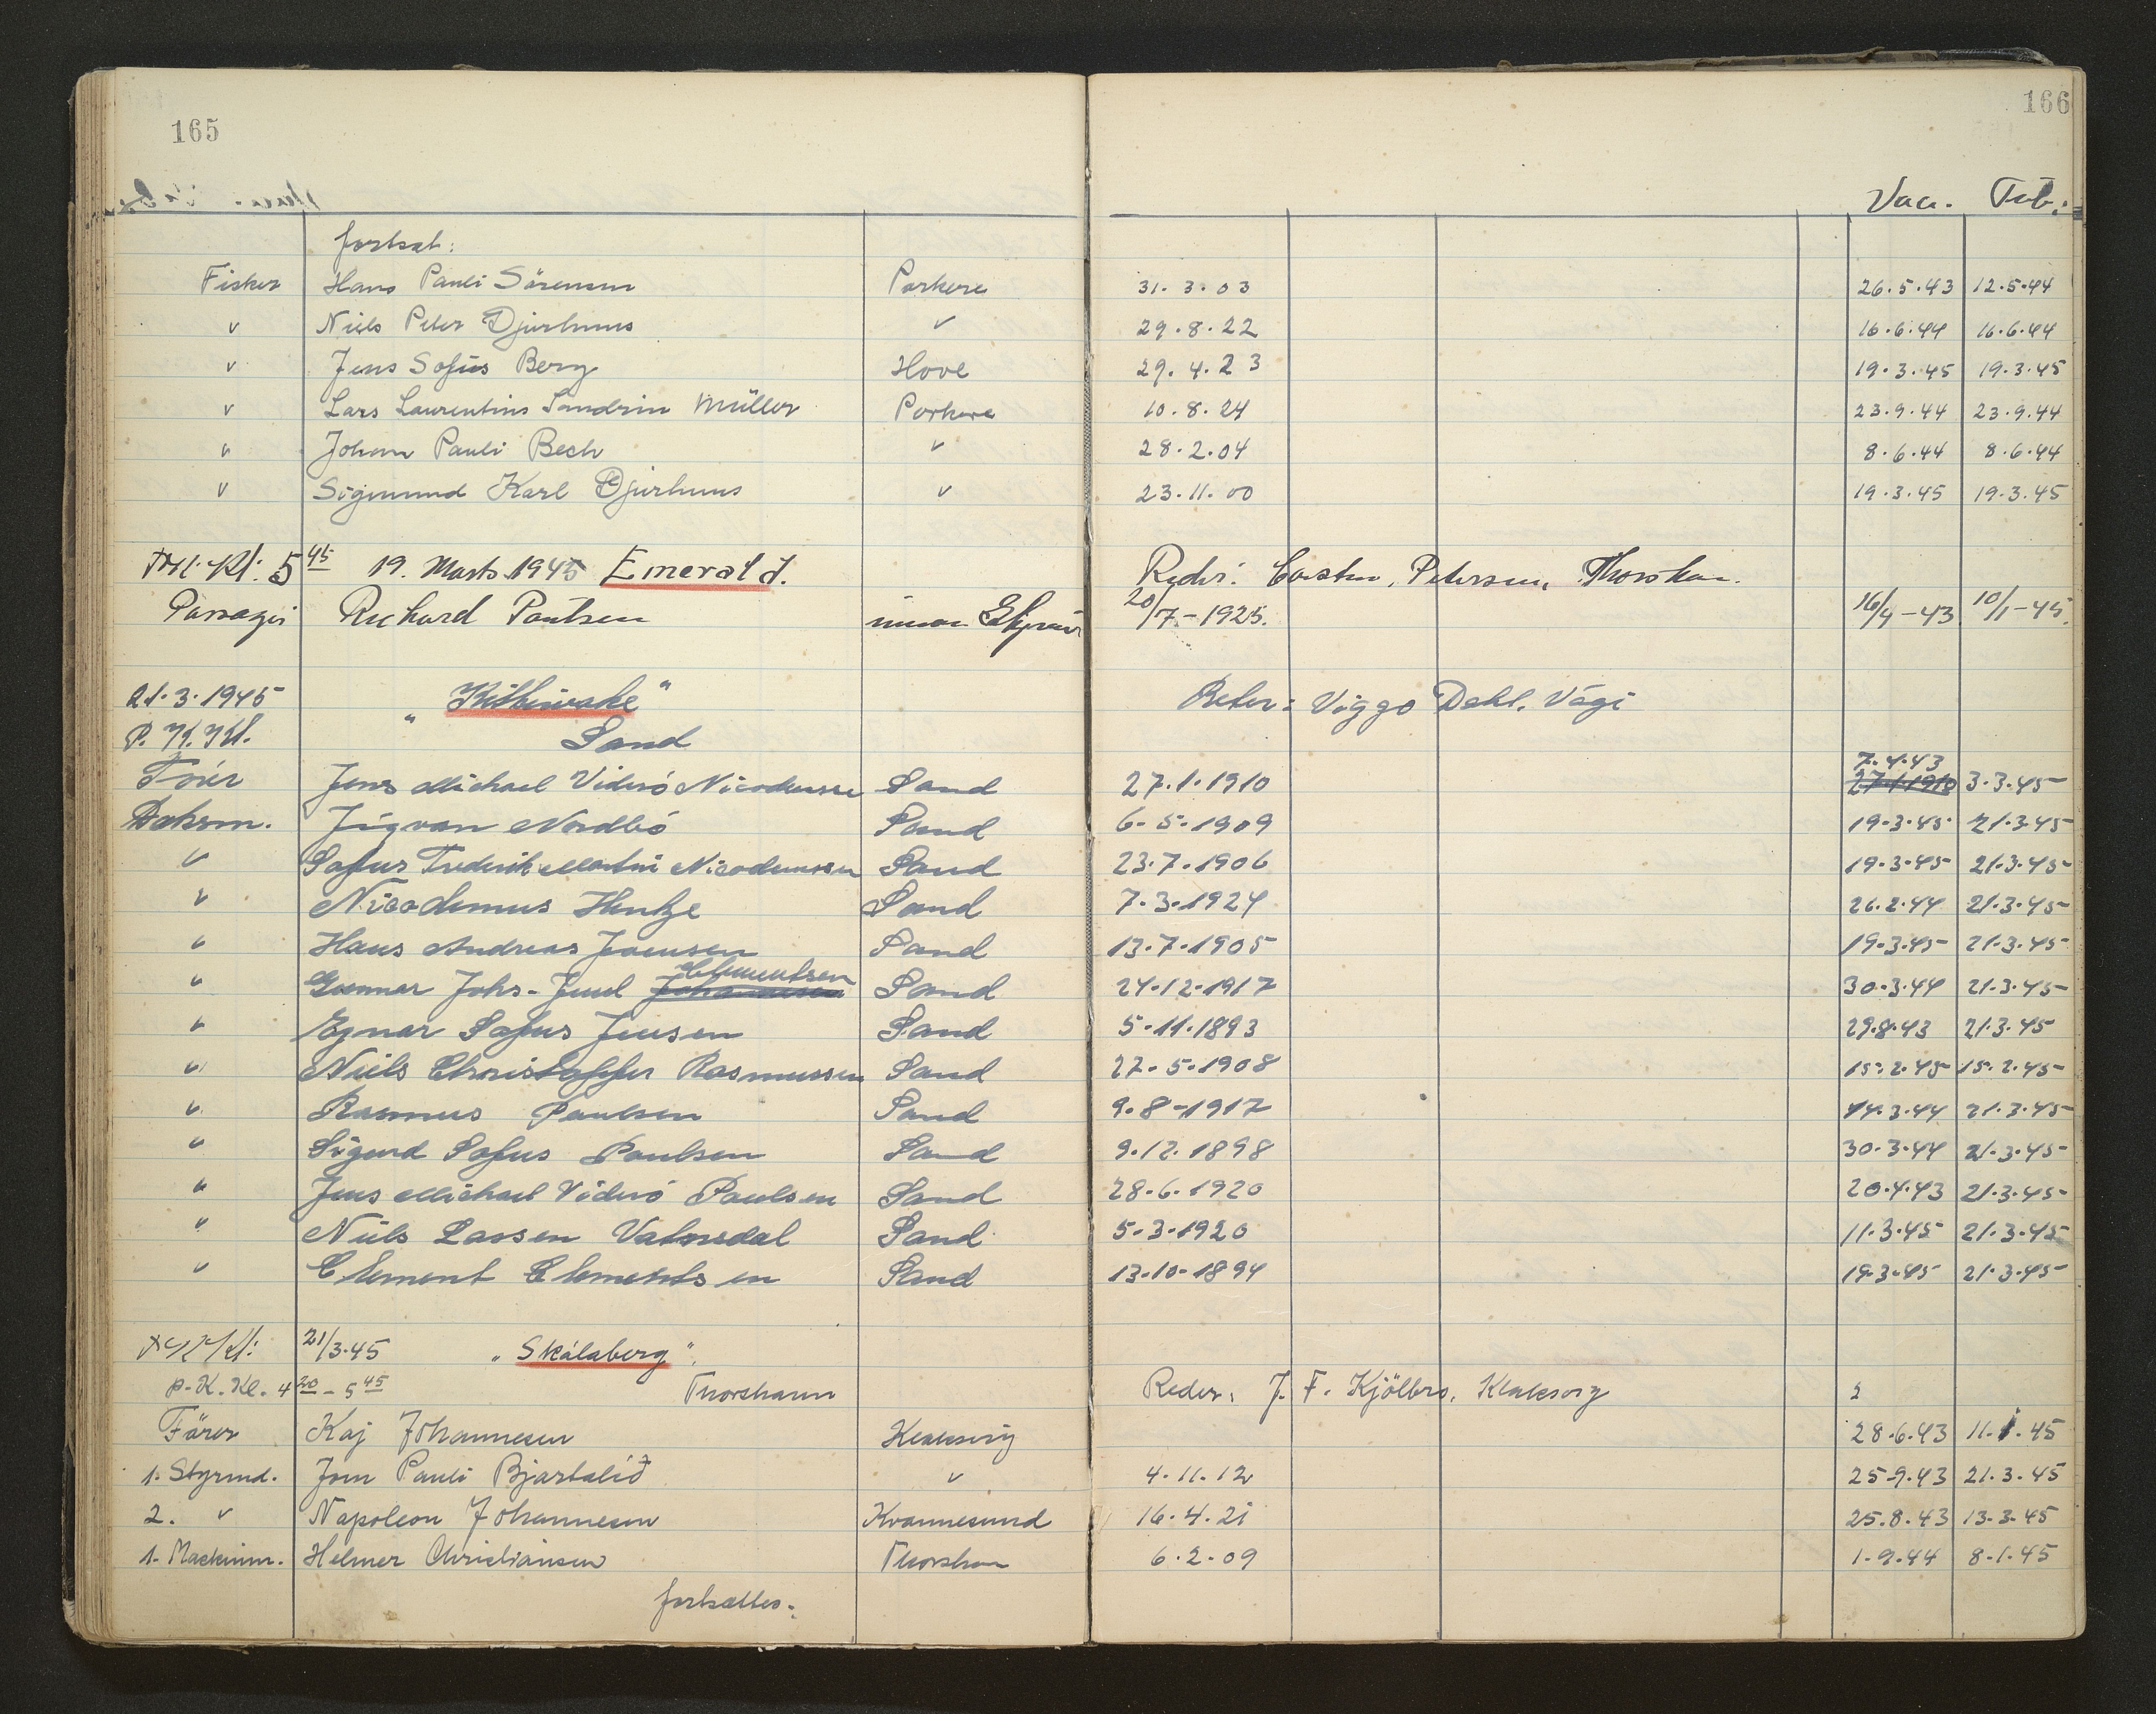 165
166
Vac. Tub.
fortsat:
Fisker Hans Pauli Sörensen Porkere 31.3.03 26.5.43 12.5.44
v Niels Peter Djurhuus v 29.8.22 16.6.44 16.6.44
v Jens Sofus Berg Hove 29.4.23 19.3.45 19.3.45
v Lars Laurentius Sandrin Müller Porkere 10.8.24 23.9.44 23.9.44
v Johan Pauli Bech v 28.2.04 8.6.44 8.6.44
v Sigmund Karl Djurhuus v 23.11.00 19.3.45 19.3.45
Kl. 5 45 19. Marts 1945 Emerald. Reder: Carsten, Petersen, Thorshavn.
Passager Richard Poulsen 20/7-1925. 16/4-43 10/1-45.
21.3.1945 " " Reder: Viggo Dahl. Vági
P. K. Kl. Sand
Förer Jens Michael Viderö Nicodemsse Sand 27.1.1910 7.4.43 27.1.1910 3.3.45
Daksm. Jigvan Nordbö Sand 6-5-1909 19-3-45 21.3.45
v Sofus Frederik Martin Nicodemssen Sand 23.7.1906 19.3.45 21.3.45
v Nicodemus Hentze Sand 7.3.1924 26.2.44 21.3.45
v Hans Andreas Joensen Sand 13.7.1905 19.3.45 21.3.45
v Gunnar Johs-Juul Johannesen Clementsen Sand 24-12-1917 30.3.44 21.3.45
v Ejnar Sofus Jensen Sand 5-11-1893 29.8.43 21.3.45
v Niels Christoffer Rasmussen Sand 27-5-1908 15.2.45 15.2.45
v Rasmus Paulsen Sand 9.8-1917 14.3.44 21.3.45
v Sigurd Sofus Poulsen Sand 9.12.1898 30.3.44 21.3.45
v Jens Michael Viderö Paulsen Sand 28-6-1920 20.4.43 21.3.45
v Niels Lassen Vatnsdal Sand 5-3-1920 11.3.45 21.3.45
v Clement Clementsen Sand 13-10-1894 19.3.45 21.3.45
Kl: 21/3.45 "Skálaberg".
P. K. Kl. 4 20 - 5 45 Thorshavn Reder: J. F. Kjölbro, Klaksvig
Förer Kaj Johannesen Klaksvig 28.6.43 11.1.45
1. Styrmd. Jom Pauli Bjartalíð v 4.11.12 25-9.43 21.3.45
2. v Napoleon Johannesen Kvannesund 16.4.21 25.8.43 13.3.45
1. Maskinm. Helmer Christiansen Thorshavn 6.2.09 1.9.44 8.1.45
fortsættes.